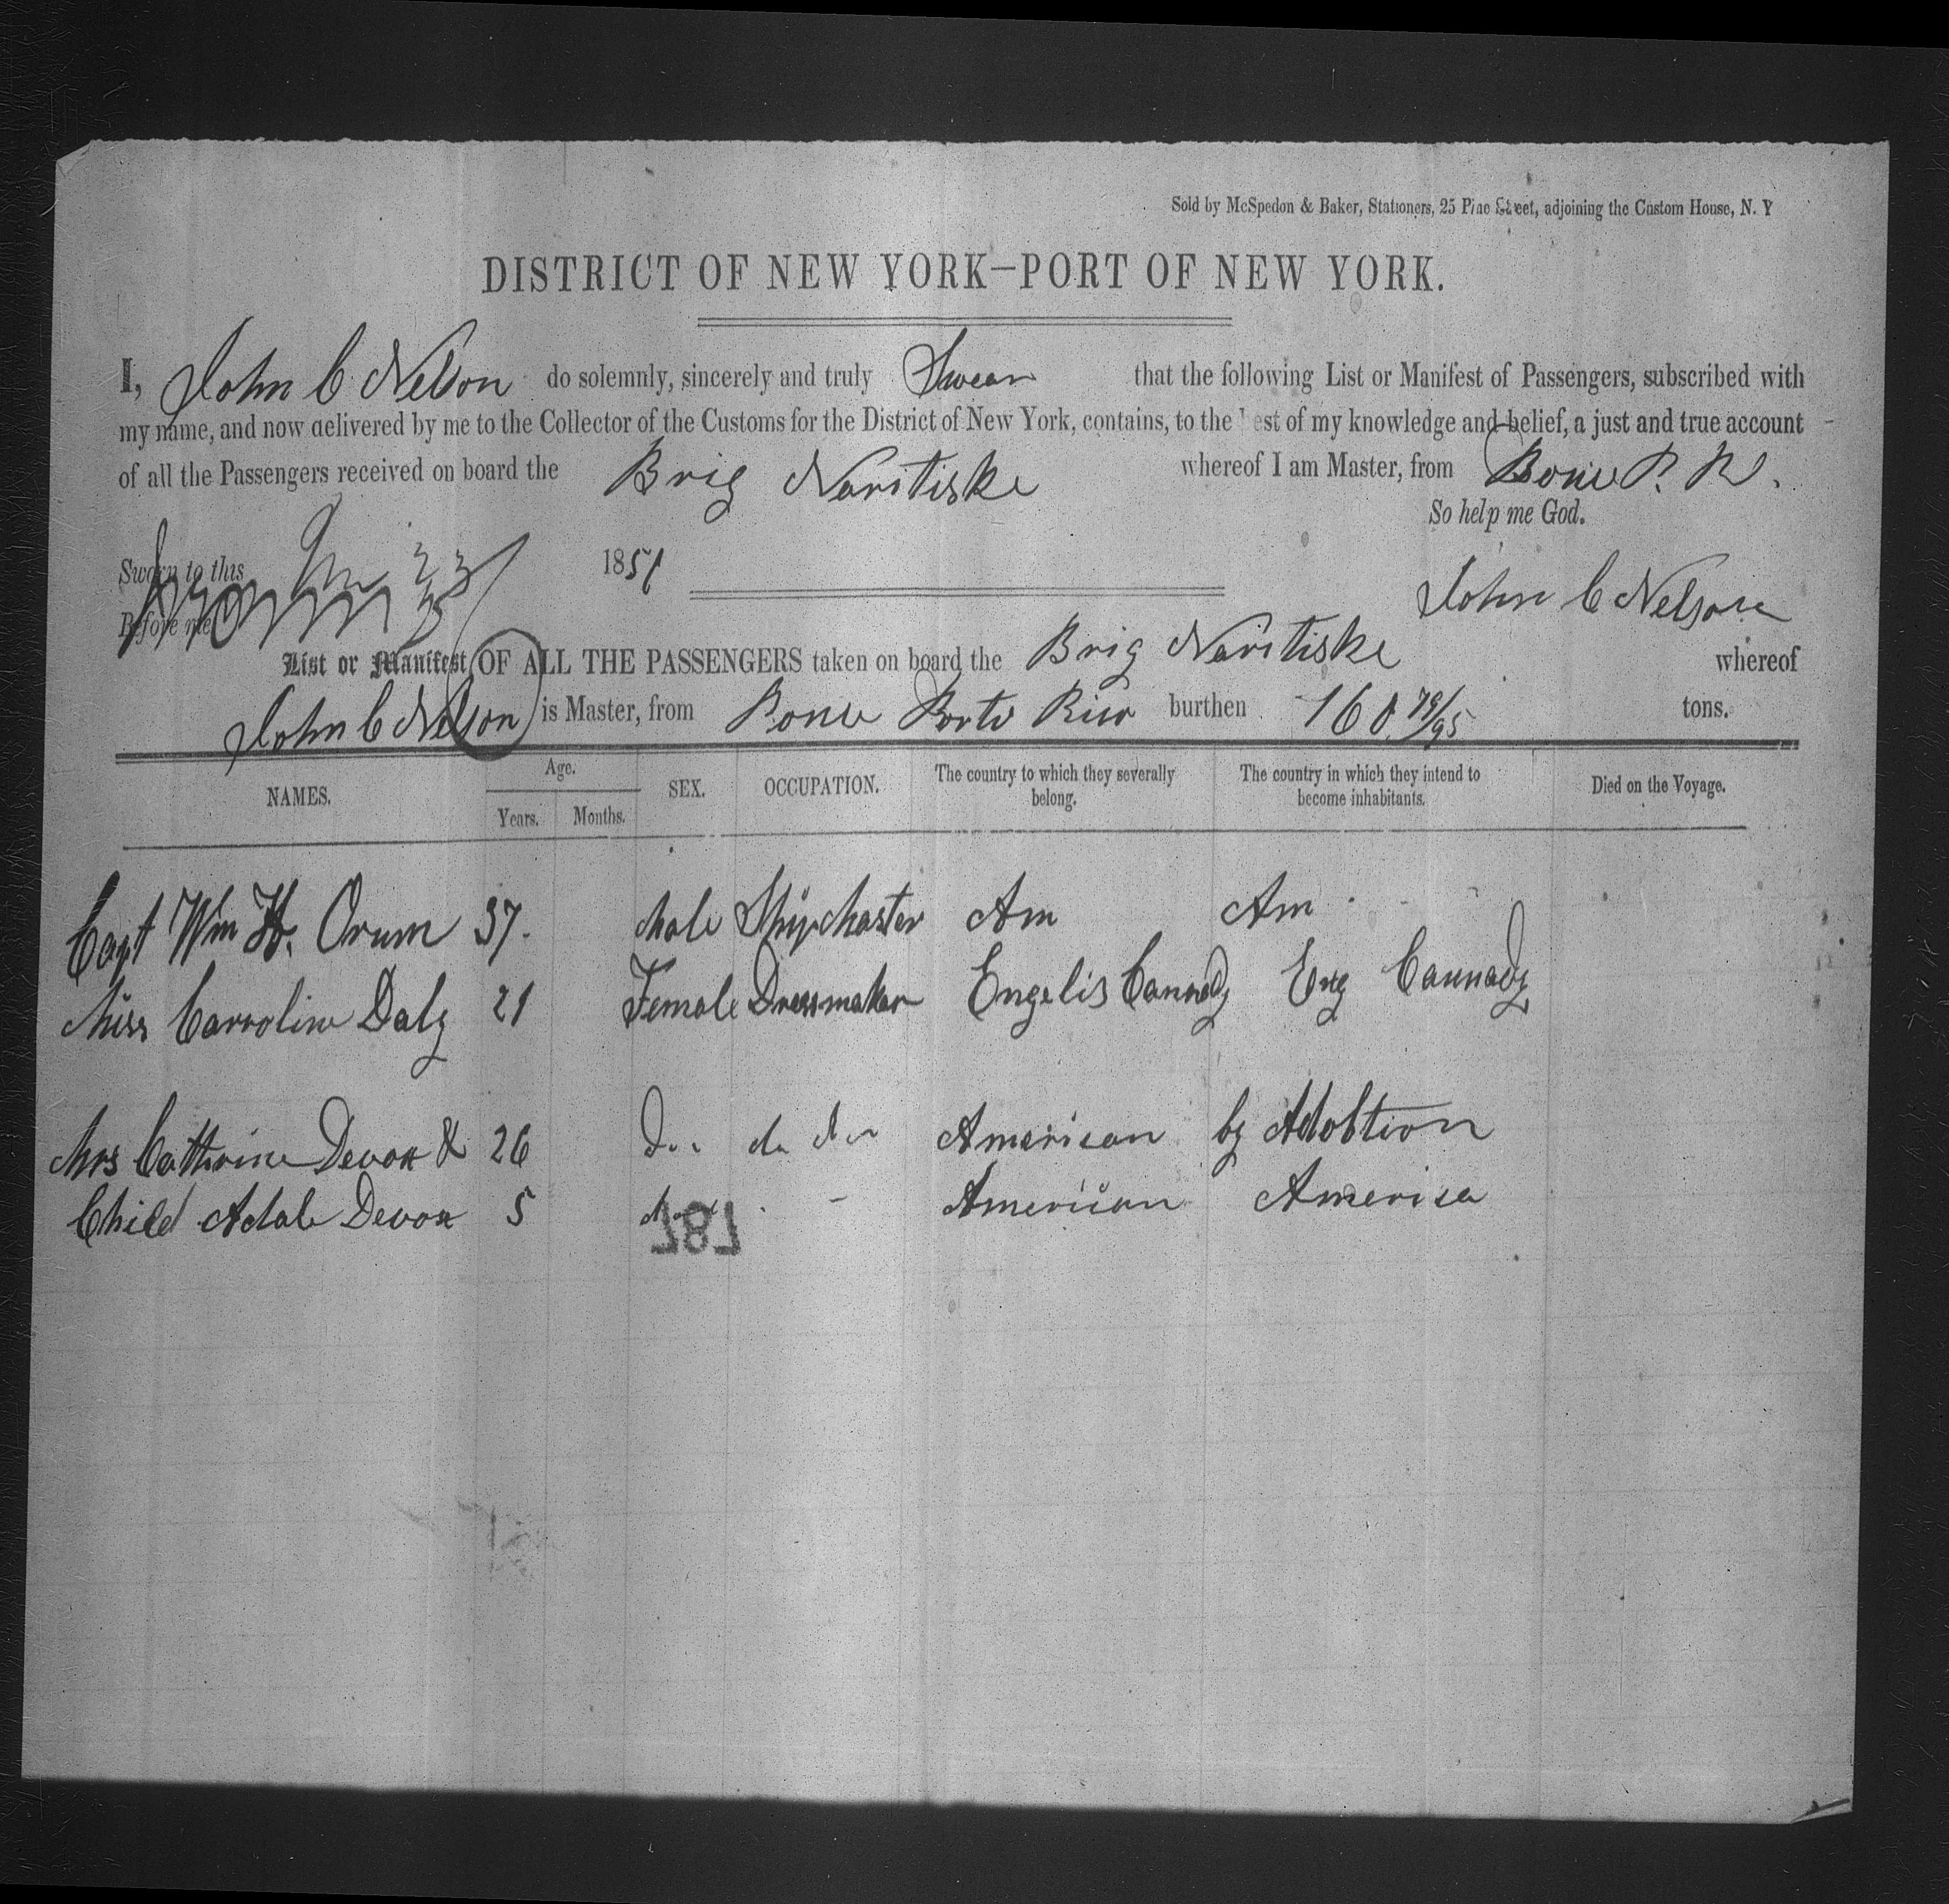 Sold by McSpedon & Baker, Stationers, 25 Pine Street, adjoining the Custom House, N. Y
DISTRICT OF NEW YORK—PORT OF NEW YORK.
I, John C Nelson do solemnly, sincerely and truly Swear that the following List or Manifest of Passengers, subscribed with
my name, and now delivered by me to the Collector of the Customs for the District of New York, contains, to the best of my knowledge and belief, a just and true account
of all the Passengers received on board the Brig Naritiske whereof I am Master, from Ponce P. R.
So help me God.
Sworn to this 23 1851
Before me
John C Nelson
List or Manifest OF ALL THE PASSENGERS taken on board the Brig Naritiske whereof
John C Nelson is Master, from Ponce Porto Rico burthen 160 79/95 tons.
NAMES. Age. Years. Months. SEX. OCCUPATION. The country to which they severally belong. The country in which they intend to become inhabitants. Died on the Voyage.
Capt Wm H. Orum 37. Male Ship Master Am Am
Miss Carroline Daly 21 Female Dressmaker Engelis Cannady Eng Cannady
Mrs Catherine Devox & 26 Do do American by Adobtion
Child Adale Devox 5 do - American America
787